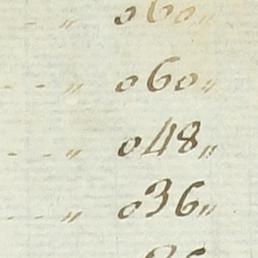 " 060"
- - " 060"
- - " 048"
- - " 036"